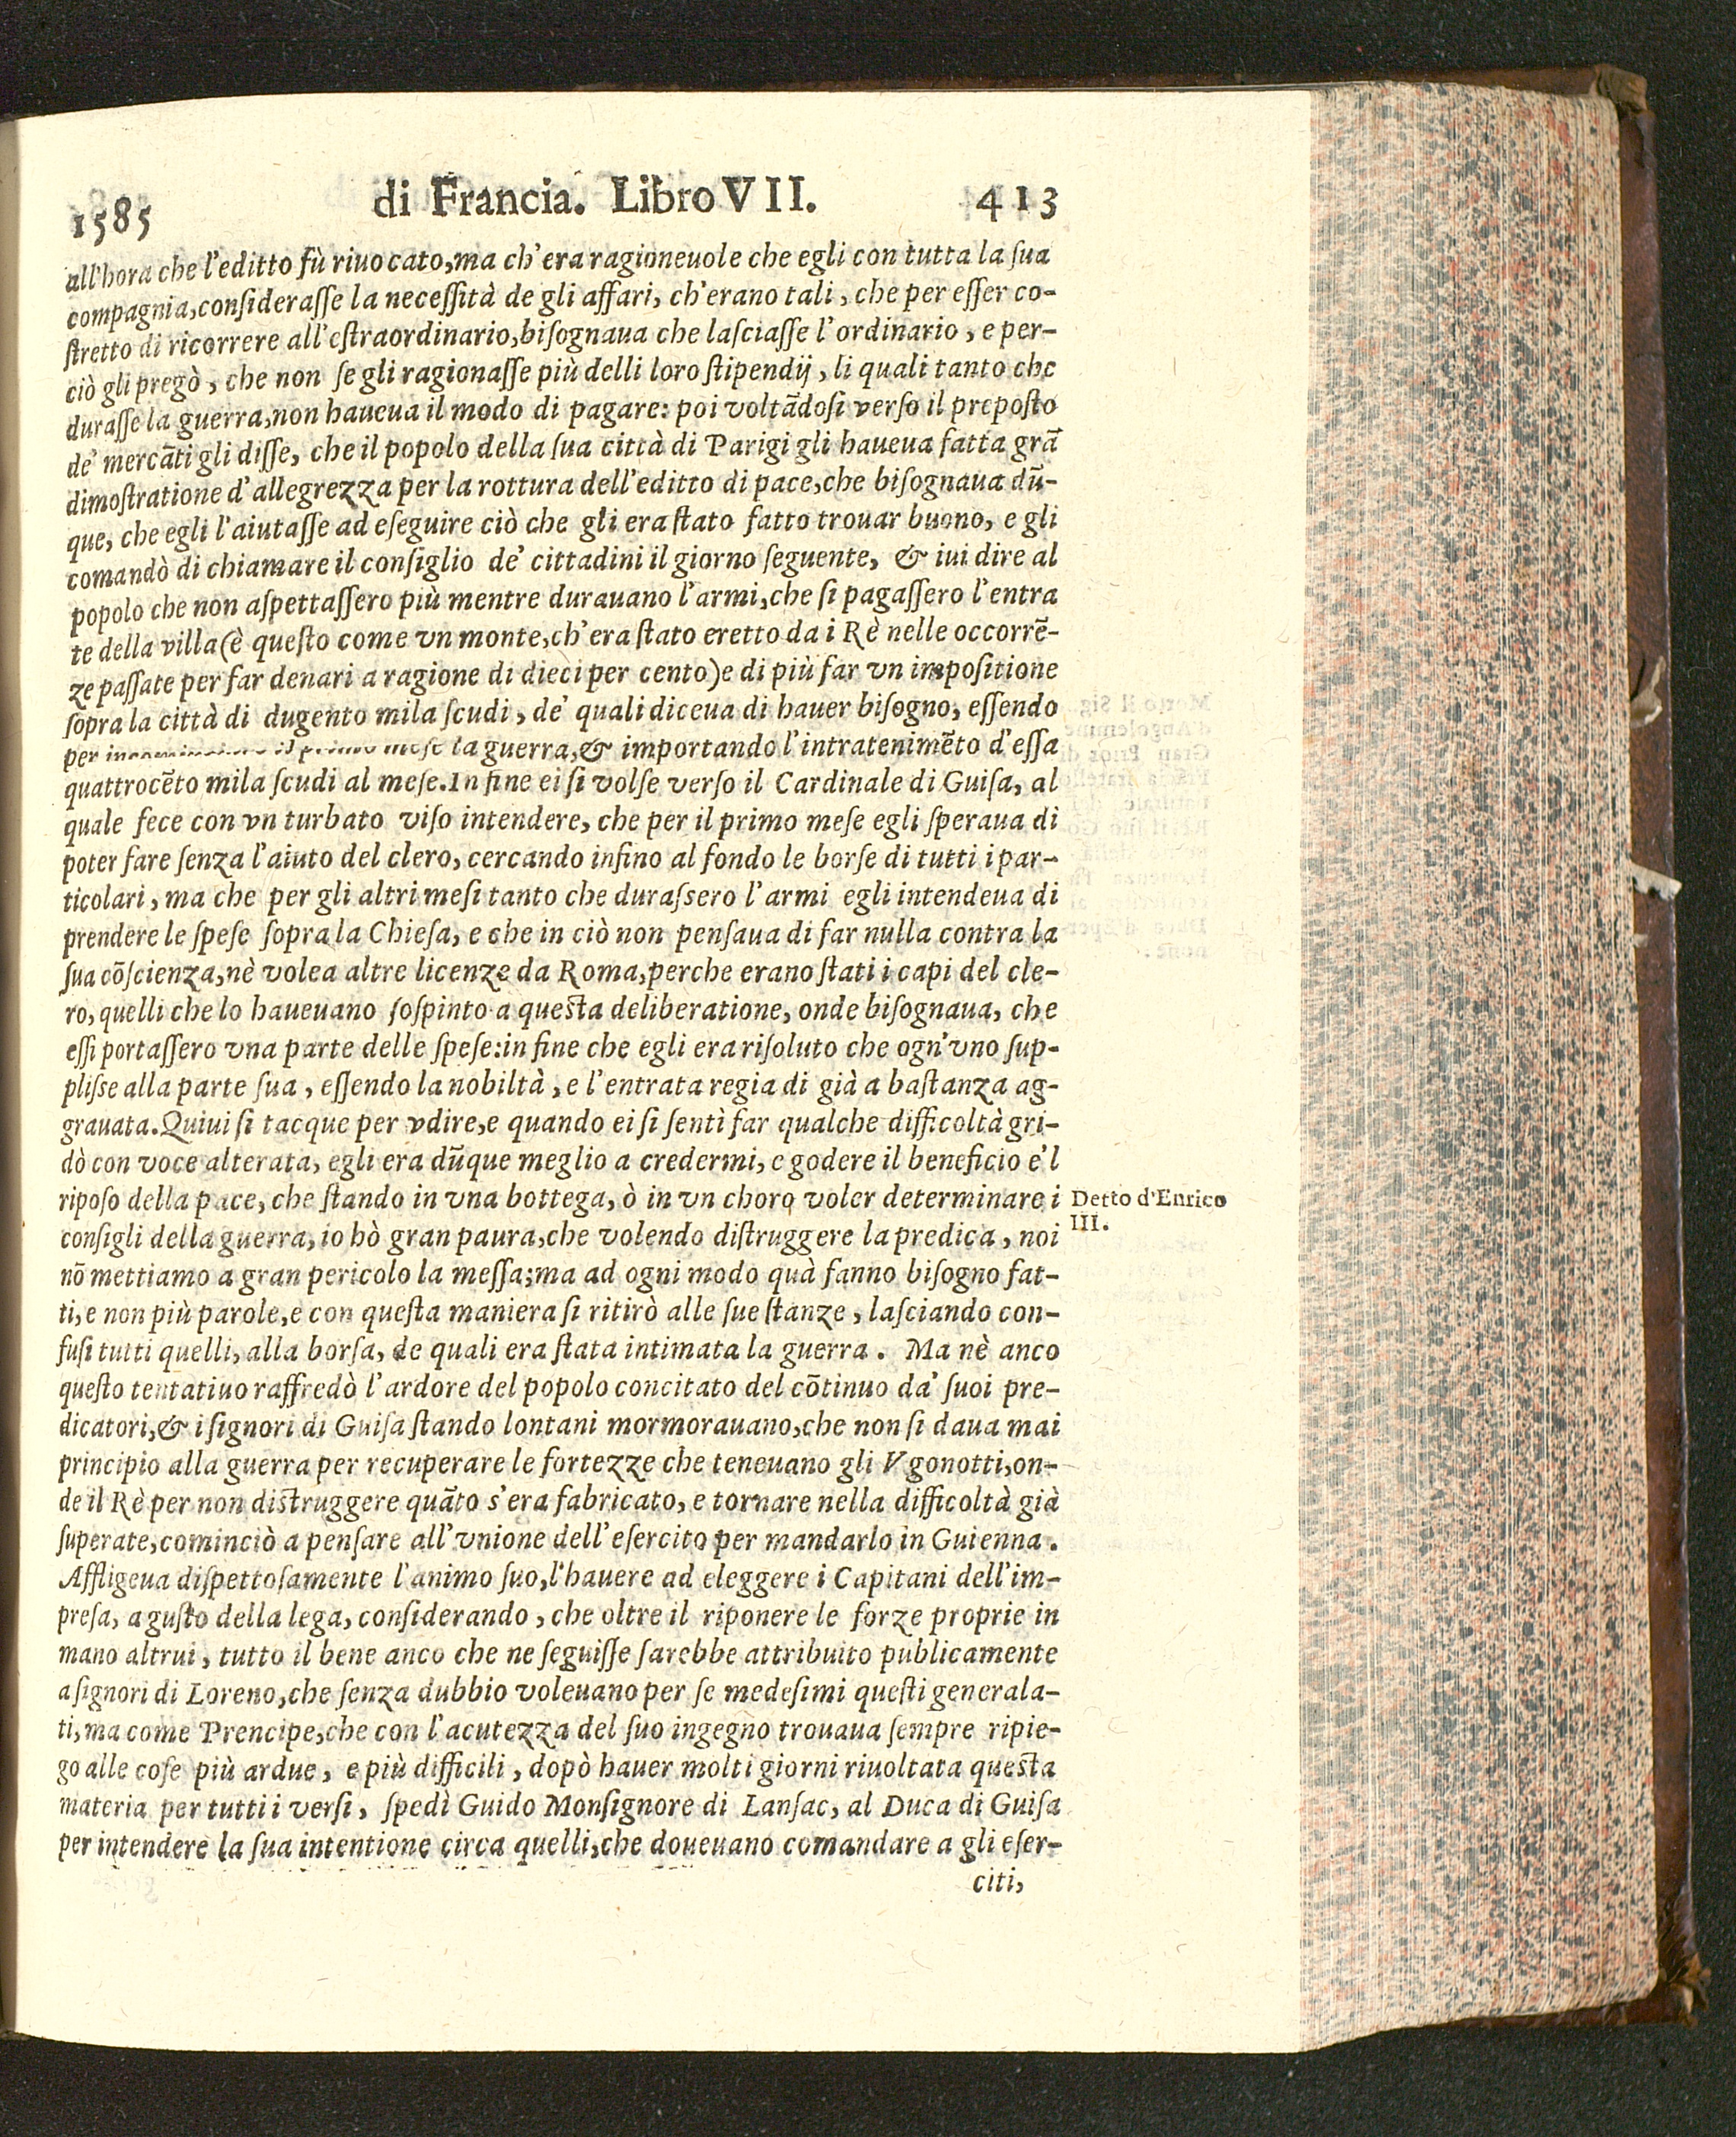 1585 di Francia. Libro VII. 413
all'hora che l'editto fù riuocato,ma ch'era ragioneuole che egli con tutta la ſua
compagnia,conſideraſſe la neceſſità de gli affari, ch'erano tali, che per eſſer co-
ſtretto di ricorrere all'eſtraordinario,biſognaua che laſciaſſe l'ordinario, e per-
ciò gli pregò, che non ſe gli ragionaſſe più delli loro ſtipendij, li quali tanto che
duraſſe la guerra,non haueua il modo di pagare: poi voltãdoſi verſo il prepoſto
de' mercãti gli diſſe, che il popolo della ſua città di Parigi gli haueua fatta grã
dimoſtratione d'allegrezza per la rottura dell'editto di pace,che biſognaua dũ-
que, che egli l'aiutaſſe ad eſeguire ciò che gli era ſtato fatto trouar buono, e gli
comandò di chiamare il conſiglio de' cittadini il giorno ſeguente, & iui dire al
popolo che non aſpettaſſero più mentre durauano l'armi,che ſi pagaſſero l'entra
te della villa (è queſto come vn monte,ch'era ſtato eretto da i Rè nelle occorrẽ-
ze paſſate per far denari a ragione di dieci per cento) e di più far vn impoſitione
ſopra la città di dugento mila ſcudi, de' quali diceua di hauer biſogno, eſſendo
per il primo meſe la guerra,& importando l'intratenimẽto d'eſſa
quattrocẽto mila ſcudi al meſe. In fine ei ſi volſe verſo il Cardinale di Guiſa, al
quale fece con vn turbato viſo intendere, che per il primo meſe egli ſperaua di
poter fare ſenza l'aiuto del clero, cercando inſino al fondo le borſe di tutti i par-
ticolari, ma che per gli altri meſi tanto che duraſsero l'armi egli intendeua di
prendere le ſpeſe ſopra la Chieſa, e che in ciò non penſaua di far nulla contra la
ſua cõſcienza,nè volea altre licenze da Roma,perche erano ſtati i capi del cle-
ro, quelli che lo haueuano ſoſpinto a queſta deliberatione, onde biſognaua, che
eſſi portaſſero vna parte delle ſpeſe:in fine che egli era riſoluto che ogn'vno ſup-
pliſse alla parte ſua, eſſendo la nobiltà, e l'entrata regia di già a baſtanza ag-
grauata. Quiui ſi tacque per vdire,e quando ei ſi ſentì far qualche difficoltà gri-
dò con voce alterata, egli era dũque meglio a credermi, e godere il beneficio e'l
ripoſo della pace, che ſtando in vna bottega, ò in vn choro voler determinare i
Detto d'Enrico
III.
conſigli della guerra, io hò gran paura,che volendo diſtruggere la predica, noi
nõ mettiamo a gran pericolo la meſſa;ma ad ogni modo quà fanno biſogno fat-
ti,e non più parole,e con queſta maniera ſi ritirò alle ſue ſtanze, laſciando con-
fuſi tutti quelli, alla borſa, de quali era ſtata intimata la guerra. Ma nè anco
queſto tentatiuo raffredò l'ardore del popolo concitato del cõtinuo da' ſuoi pre-
dicatori,& i ſignori di Guiſa ſtando lontani mormorauano,che non ſi daua mai
principio alla guerra per recuperare le fortezze che teneuano gli Vgonotti,on-
de il Rè per non diſtruggere quãto s'era fabricato, e tornare nella difficoltà già
ſuperate,cominciò a penſare all'vnione dell'eſercito per mandarlo in Guienna.
Affligeua diſpettoſamente l'animo ſuo,l'hauere ad eleggere i Capitani dell'im-
preſa, a guſto della lega, conſiderando, che oltre il riponere le forze proprie in
mano altrui, tutto il bene anco che ne ſeguiſſe ſarebbe attribuito publicamente
a ſignori di Loreno,che ſenza dubbio voleuano per ſe medeſimi queſti generala-
ti,ma come Prencipe,che con l'acutezza del ſuo ingegno trouaua ſempre ripie-
go alle coſe più ardue, e più difficili, dopò hauer molti giorni riuoltata queſta
materia per tutti i verſi, ſpedì Guido Monſignore di Lanſac, al Duca di Guiſa
per intendere la ſua intentione circa quelli,che doueuano comandare a gli eſer-
citi,